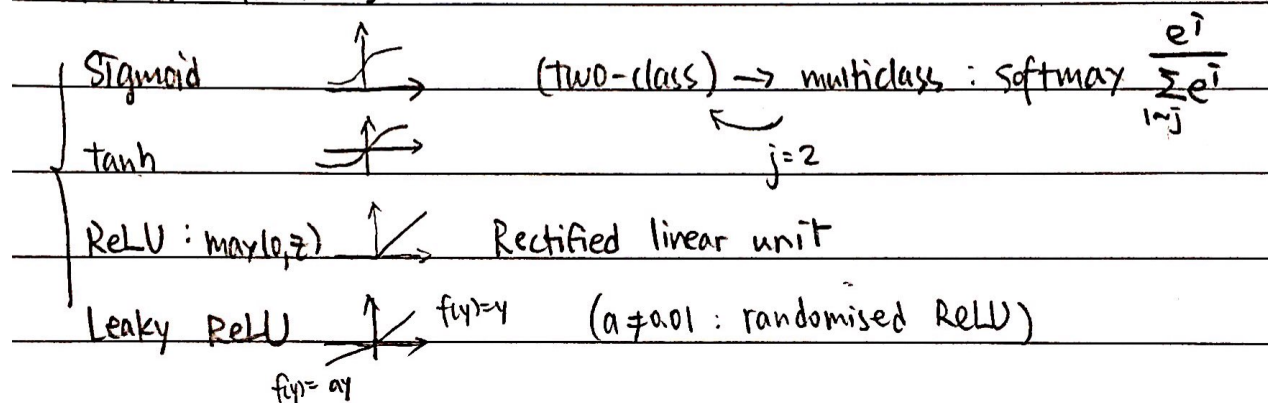 Sigmoid (two-class) → multiclass : softmax e^i / Σ e^i 1~j
j=2
tanh
ReLU : max(0,z) Rectified linear unit
Leaky ReLU f(y)=y (a≠0.01 : randomised ReLU)
f(y)= ay